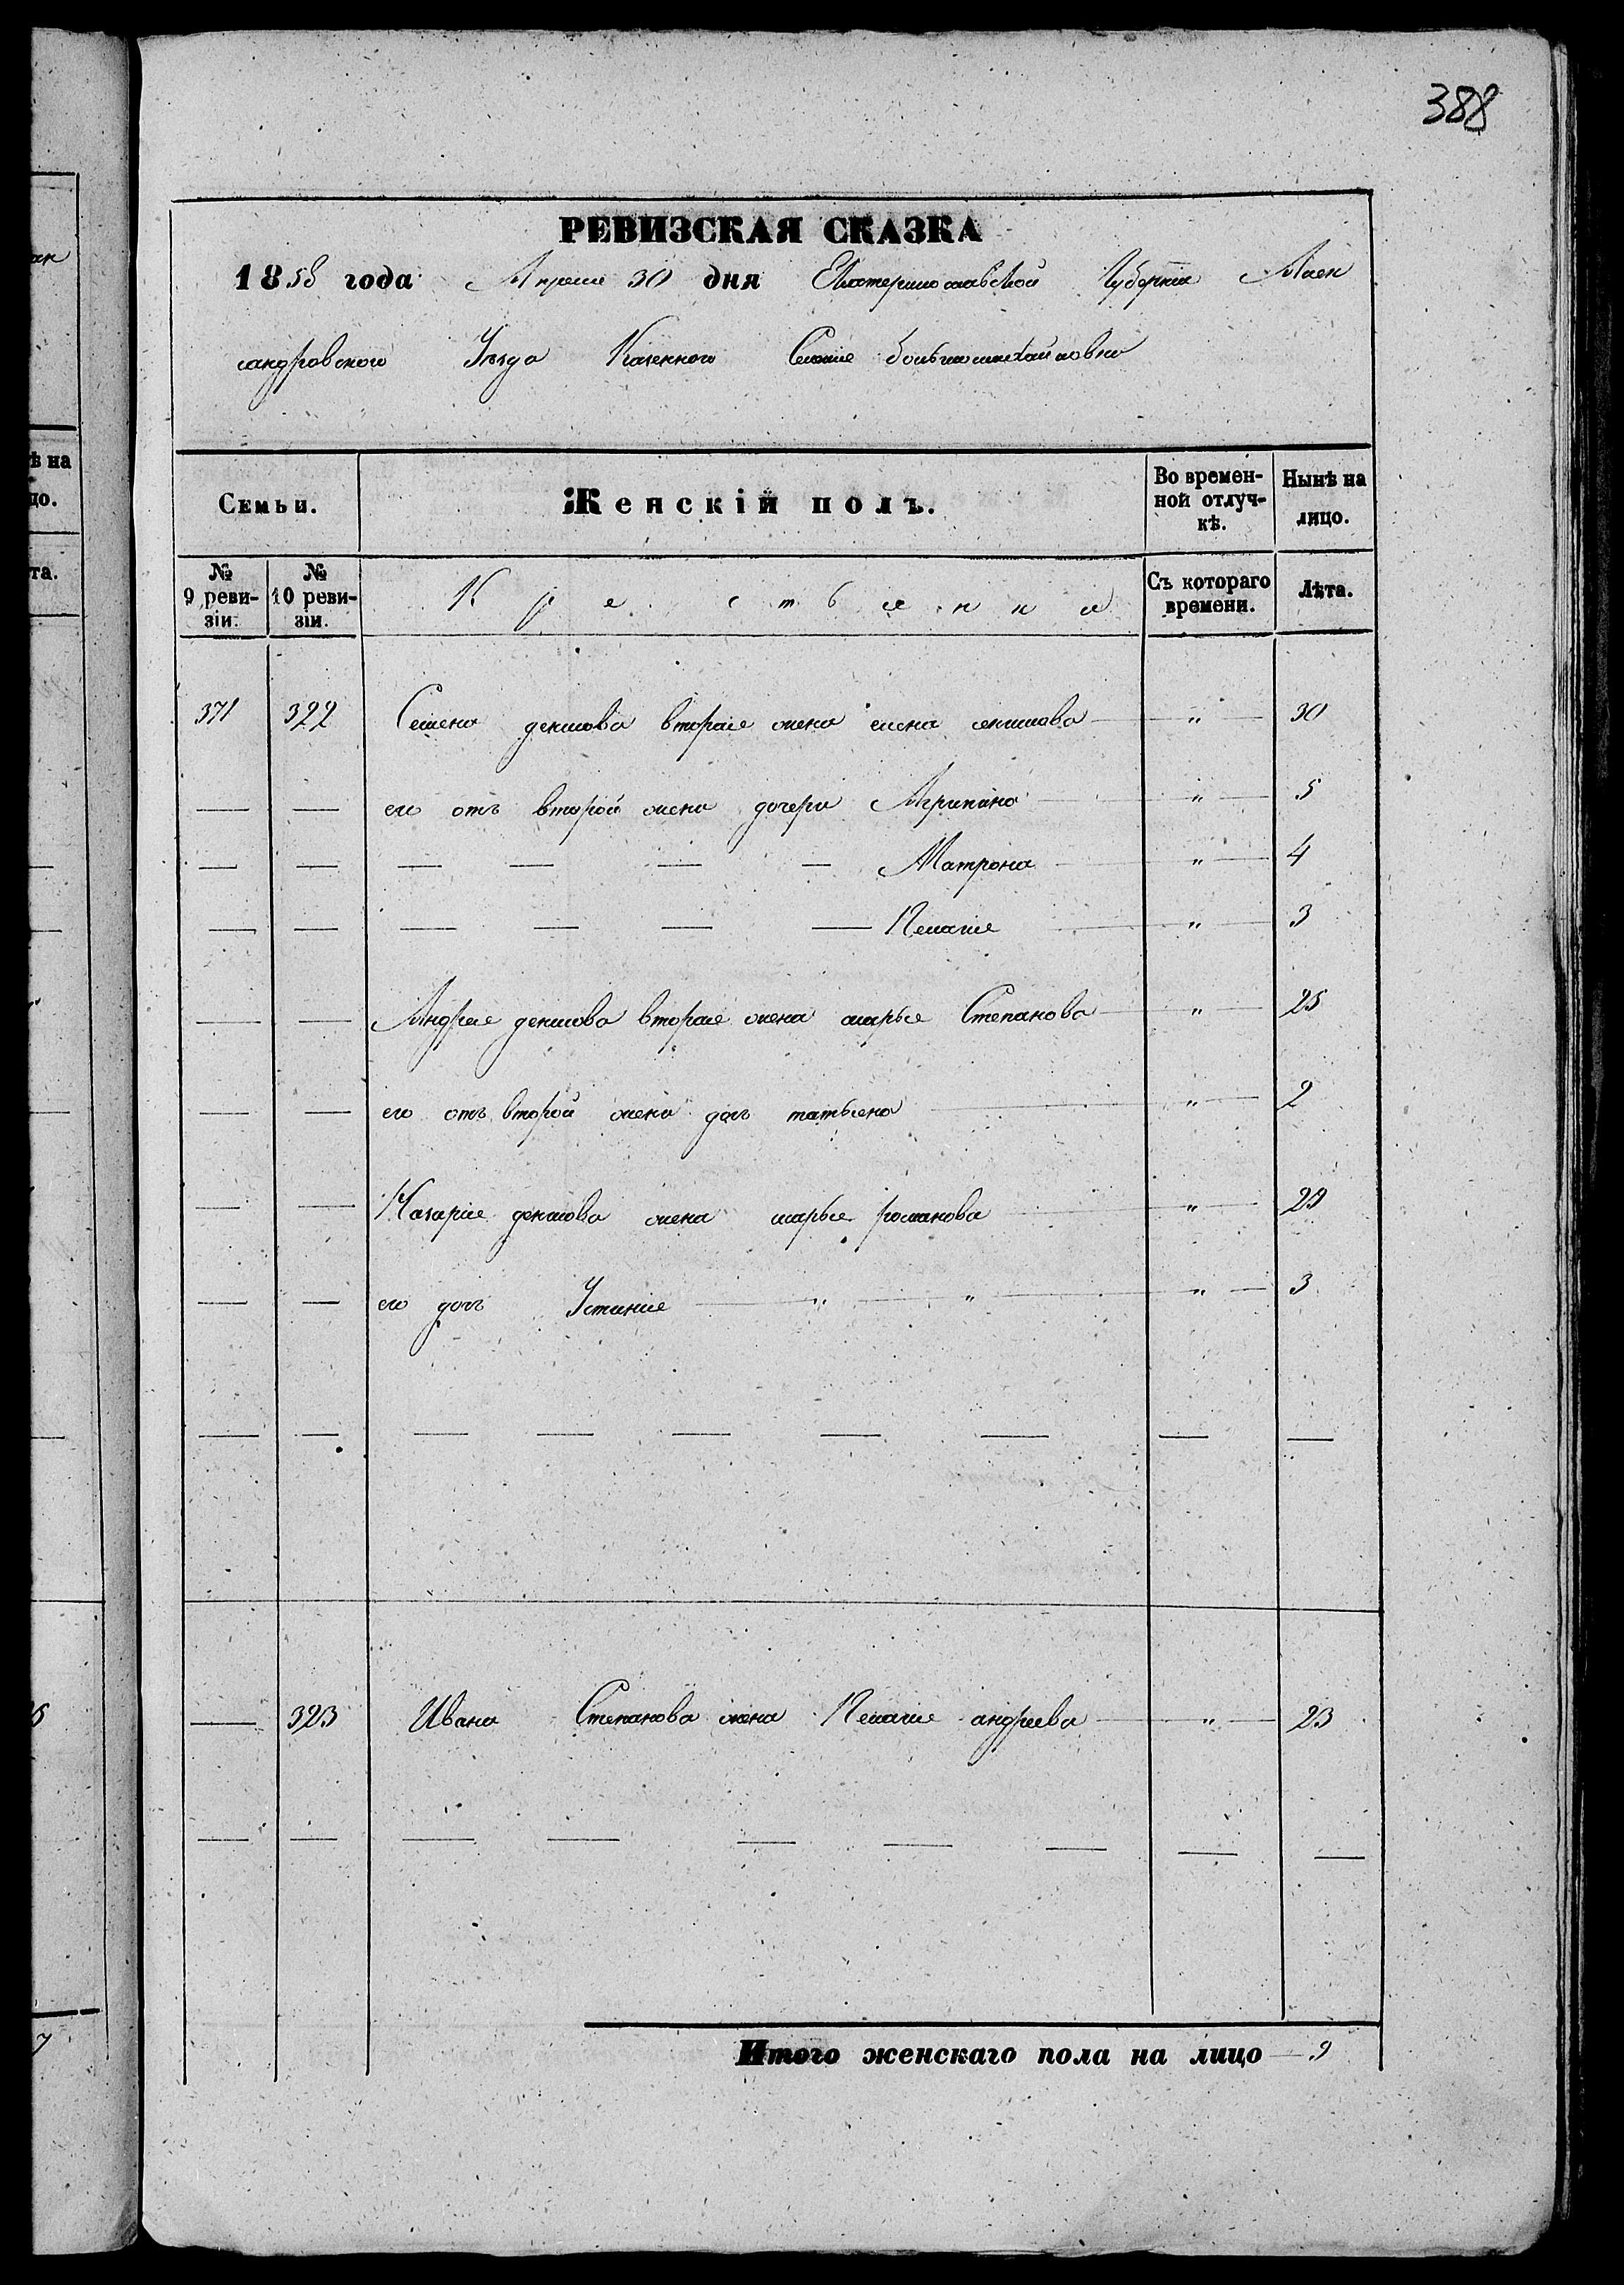 388
РЕВИЗСКАЯ СКАЗКА
1858 года Апреля 30 дня Екатеринославской Губернии Алек
сандровского Уезда Казенного Селения большемихайловки
Семьи. Женскій полъ. Во времен-ной отлуч-кѣ. Нынѣ на лицо.
№ 9 реви-зіи. № 10 реви-зіи. Крестьянки Съ котораго времени. Лѣта.
371 322 Семена денисова вторая жена елена " 30
— — его отъ второй жены дочери Агрипина " 5
— — — — — — Матрона " 4
— — — — — — Пелагия " 3
— — Андрея денисова вторая жена марья Степанова " 25
— — его отъ второй жены дочь татьяна " 2
— — Назария денисова жена марья романова " 29
— — его дочь Устиния " " " 3
— — — — — — — — —
— 323 Ивана Степанова жена Пелагия андреева " 23
— — — — — — — — —
Итого женскаго пола на лицо — 9
ѣ на
цо.
та.
7